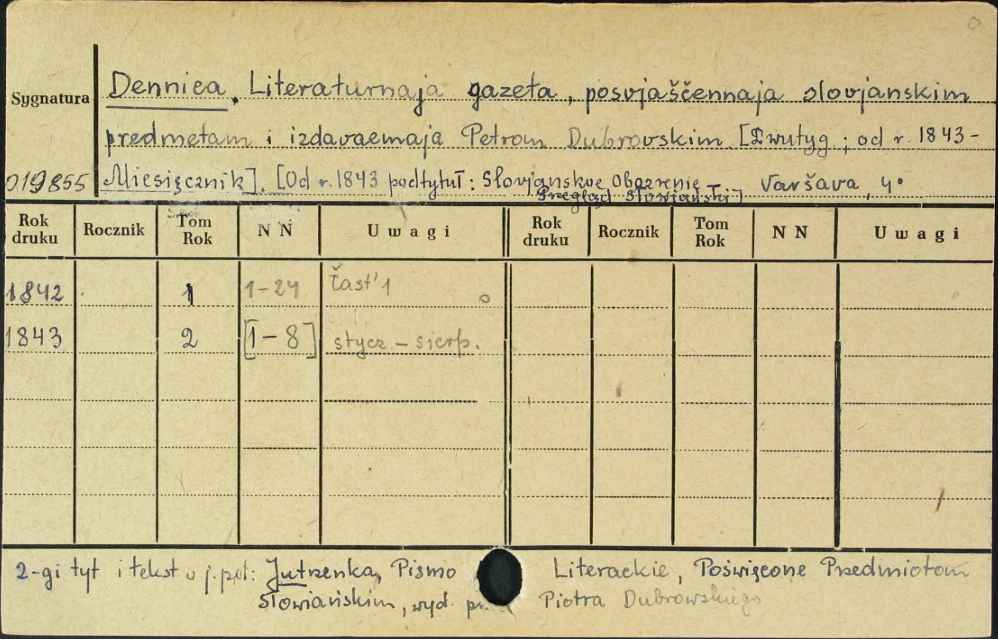 Sygnatura Dennica. Literaturnaja gazeta, posvjaščennaja slovjanskim
predmetam i izdavaemaja Petrom Dubrovskim [Dwutyg ; od r. 1843-
019855 Miesięcznik]. [Od r. 1843 podtytuł: Slovjanskoe Obozrenie Varšava, 4°
Przegląd Słowiański]
Rok druku Rocznik Tom Rok NN Uwagi Rok druku Rocznik Tom Rok NN Uwagi
1842 1 1-24 Čast' 1
1843 2 [1-8] stycz. - sierp.
2-gi tyt i tekst w j. pol: Jutrzenka, Pismo Literackie, Poświęcone Przedmiotom
Słowiańskim, wyd. Piotra Dubrowskiego